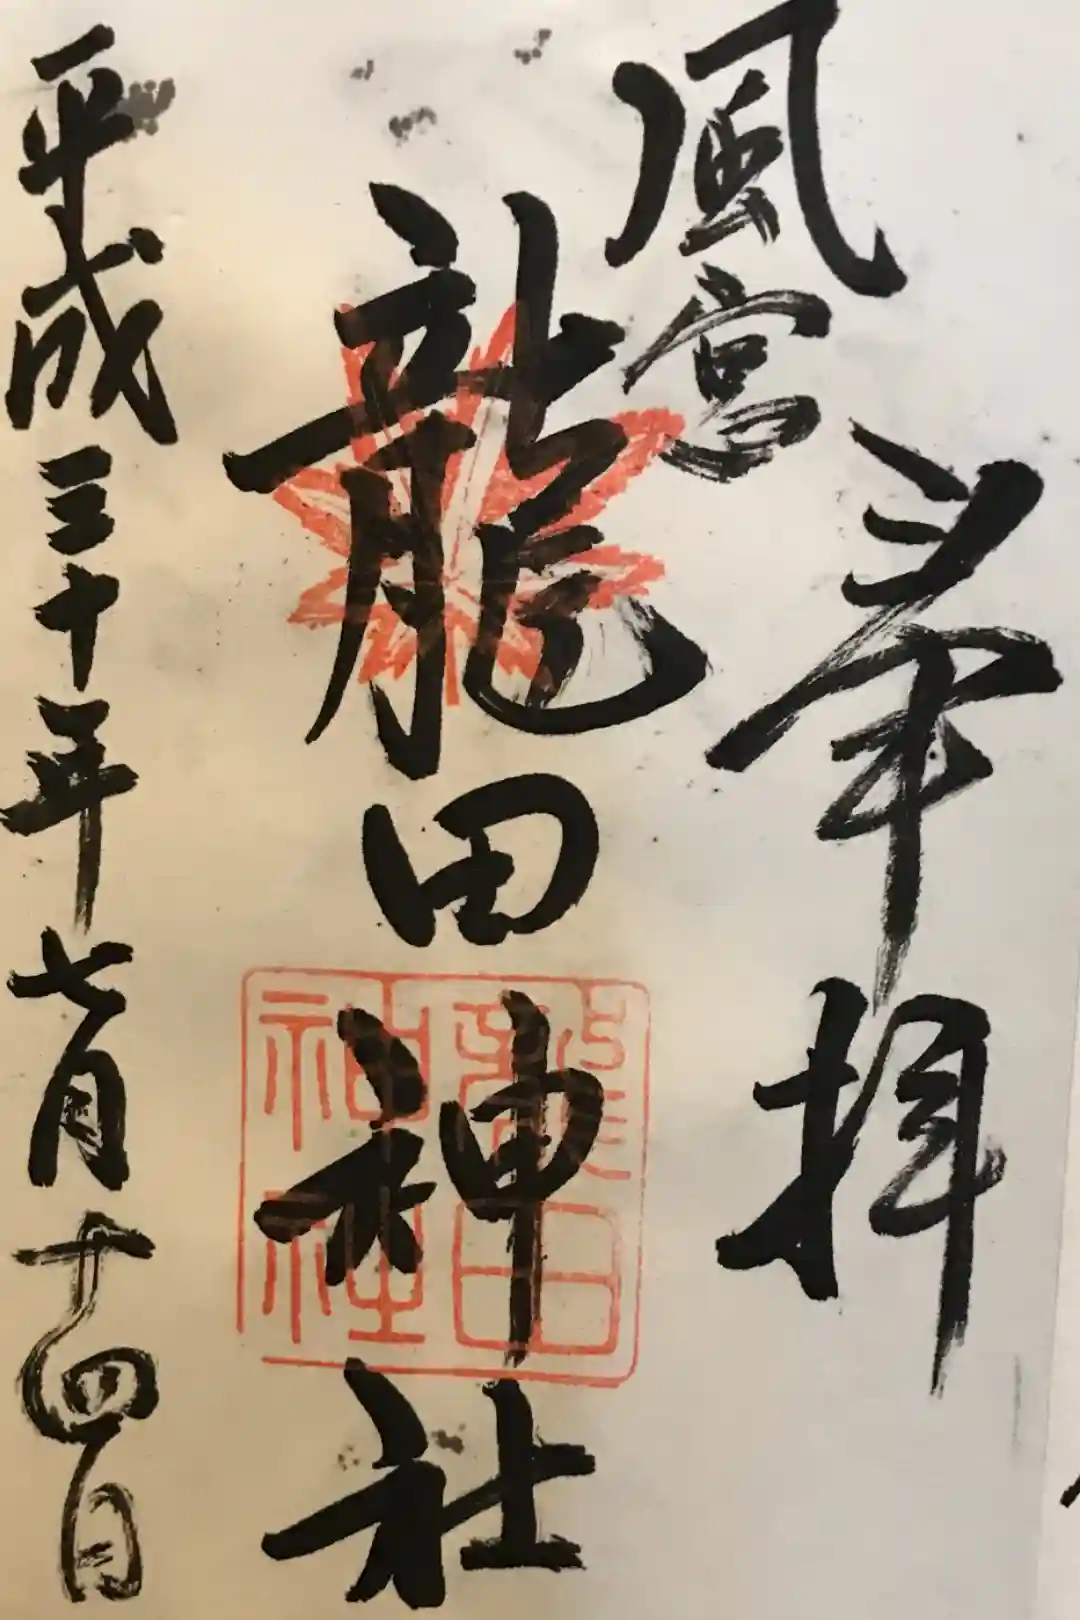 奉拝
風宮
龍田神社
龍田
神社
平成三十年七月十四日